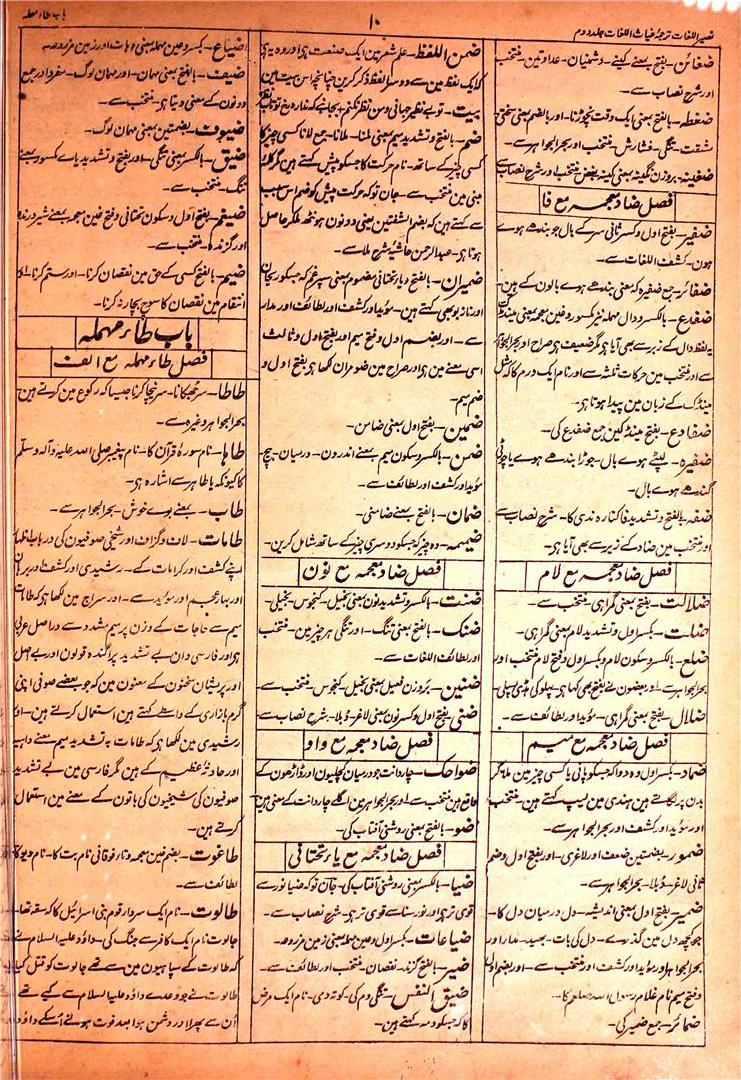 نصیر اللغات ترجمۂ غیاث اللغات جلد دوم
۱۰
باب طاء مہملہ
ضغائن۔ بفتح بمعنے کینے۔ ودشمنیان۔ عداوتین۔ منتخب
اور شرح نصاب سے۔
ضغطہ۔ بالفتح بمعنی ایک وقت نچوڑنا۔ اور بالضم بمعنی سختی
مشقت۔ تنگی۔ فشارش۔ منتخب اور بحر الجواہر سے۔
ضغینہ۔ بروزن نگینہ بمعنی کینہ بغض منتخب اور شرح نصاب سے
فصل ضاد معجمہ مع فا
ضفیر۔ بفتح اول وکسر ثانی سر کے بال جو بندھے ہوے
ہون۔ کشف اللغات سے۔
ضفائر۔ جمع ضفیرہ کہ بمعنی بندھے ہوے بالون کے ہین۔
ضفدع۔ بالکسر ودال مہملہ نیز کسور وعین مہملہ بمعنی مینڈک
یہ لفظ دال کے زبر سے بھی آیا ہی مگر ضعیف ہی صراح اور بحر الجواہر
سے اور منتخب مین حرکات ثلثہ سے اور نام ایک ورم کا کہ شکل
مینڈک کے زبان مین پیدا ہوتا ہی۔
ضفادع۔ بفتح مینڈکین جمع ضفدع کی۔
ضفیرہ۔ لپٹے ہوے بال۔ جوڑا بندھے ہوے یا چوٹی
گندھے ہوے بال۔
ضفہ۔ بالفتح وتشدید فا کنارہ ندی کا۔ شرح نصاب سے
اور منتخب مین ضاد کے زیر سے بھی آیا ہی۔
فصل ضاد معجمہ مع لام
ضلالت۔ بفتح بمعنی گمراہی۔ منتخب سے۔
ضلت۔ بکسر اول وتشدید لام بمعنی گمراہی۔
ضلع۔ بالکسر وسکون لام وبکسر اول وفتح لام منتخب اور
بحر الجواہر سے اور بعضون نے بفتح بھی کہا ہی۔ پہلو کی ہڈی پسلی۔
ضلال۔ بفتح بمعنی گمراہی۔ مؤید اور لطائف سے۔
فصل ضاد معجمہ مع میم
ضماد۔ بکسر اول وہ دوا کہ جسکو پانی یا کسی چیز مین ملا کر
بدن پر لگاتے ہین ہندی مین لیپ کہتے ہین۔ منتخب
اور مؤید اور کشف اور بحر الجواہر سے۔
ضمور۔ بضمتین ضعف اور لاغری۔ اور بفتح اول وضم
ثانی لاغر۔ دُبلا۔ بحر الجواہر سے۔
ضمیر۔ بفتح اول بمعنی اندیشہ۔ دل درمیان دل کا۔
جو کچھ دل مین گذرے۔ دل کی بات۔ بھید۔ مدار اور
بحر الجواہر اور مؤید اور کشف اور منتخب سے۔ اور بضم اول
وفتح میم نام غلام رسول اللہ صلعم کا۔
ضمائر۔ جمع ضمیر کی۔
ضمن اللفظ۔ علم شعر مین ایک صنعت ہی اور وہ یہ ہی
کہ ایک لفظ مین سے دوسرا لفظ ذکر کرین چنانچہ اس بیت مین
ضم۔ بالفتح وتشدید میم بمعنی ملنا۔ ملانا۔ جمع لانا کسی چیز کا
کسی چیز کے ساتھ۔ نام حرکت کا جسکو پیش کہتے ہین
مین منتخب سے۔ جان تو کہ حرکت پیش کو ضم اس سبب
سے کہتے ہین کہ بضم الشفتین یعنی دونون ہونٹھ ملکر حاصل
ہوتا ہی۔ عبد الرحمن حاشیہ شرح ملا سے۔
ضمیران۔ بالفتح ویا تحتانی مضموم بمعنی سپرغم کہ جسکو ریحان
اور نازبو بھی کہتے ہین۔ مؤید اور کشف اور لطائف اور مدار
سے۔ اور بضم اول وفتح میم اور بفتح اول وثالث
اسی معنے مین ہی اور صراح مین ضومران لکھا ہی بفتح اول و
ضم میم۔
ضمین۔ بفتح اول بمعنی ضامن۔
ضمن۔ بالکسر وسکون میم بمعنے اندرون۔ درمیان۔ بیچ۔
مؤید اور کشف اور لطائف سے۔
ضمان۔ بالفتح بمعنے ضامنی۔
ضمیمہ۔ وہ چیز کہ جسکو دوسری چیز کے ساتھ شامل کرین۔
فصل ضاد معجمہ مع نون
ضنت۔ بالکسر وتشدید نون بمعنی بخیل۔ کنجوس۔ بخیلی۔
ضنک۔ بالفتح بمعنی تنگ۔ اور تنگی ہر چیز مین۔ منتخب
اور لطائف اللغات سے۔
ضنین۔ بروزن فعیل بمعنی بخیل۔ کنجوس۔ منتخب سے۔
ضنی۔ بفتح اول وکسر نون بمعنی لاغر۔ دُبلا۔ شرح نصاب سے۔
فصل ضاد معجمہ مع واو
ضواحک۔ چار دانت جو درمیان کچلیون اور ڈاڑھون کے
واقع ہین منتخب سے۔ اور بحر الجواہر مین اگلے چار دانت کے معنی ہین
ضو۔ بالفتح بمعنی روشنی آفتاب کی۔
فصل ضاد معجمہ مع یائے تحتانی
ضیا۔ بالکسر بمعنی روشنی آفتاب کی۔ جان تو کہ ضیا نور سے
قوی تر ہی اور نور سنا سے قوی تر ہی۔ شرح نصاب سے۔
ضیاعات۔ بکسر اول وعین مہملہ بمعنی زمین مزروعہ۔
ضیر۔ بالفتح گزند۔ نقصان۔ منتخب اور لطائف سے۔
ضیق النفس۔ تنگی دم کی۔ کوتہ دمی۔ نام ایک مرض
کا کہ جسکو دمہ کہتے ہین۔
اضیاع۔ بکسر وعین مہملہ بمعنی دیہات اور زمین مزروعہ
ضیف۔ بالفتح بمعنی مہمان۔ اور مہمان لوگ۔ مفرد اور جمع
دونون کے معنی دیتا ہی۔ منتخب سے۔
ضیوف۔ بضمتین بمعنی مہمان لوگ۔
ضیق۔ بالکسر بمعنی تنگی۔ اور بفتح وتشدید یاے کسور بمعنے
تنگ۔ منتخب سے۔
ضیغم۔ بفتح اول وسکون تحتانی وفتح غین معجمہ بمعنے شیر درندہ
اور گزندہ۔ منتخب سے۔
ضیم۔ بالفتح کسی کے حق مین نقصان کرنا۔ اور ستم کرنا۔
انتقام مین نقصان کا سوچ بچار نہ کرنا۔
باب طاء مہملہ
فصل طاء مہملہ مع الف
طاطا۔ سر جھکانا۔ سر نیچا کرنا جیسا کہ رکوع مین کرتے ہین۔
بحر الجواہر وغیرہ سے۔
طاہا۔ نام سورۂ قرآن کا۔ نام پیغمبر صلی اللہ علیہ وآلہ وسلم
کا کیونکہ یا طاہر سے اشارہ ہی۔
طاب۔ بمعنے بوے خوش۔ بحر الجواہر سے۔
طامات۔ لاف وگزاف اور شیخی صوفیون کی در باب اظہار
اپنے کشف اور کرامات کے۔ رشیدی اور کشف اور برہان
اور بہار عجم اور مؤید سے۔ اور سراج مین لکھا ہی کہ طامات
میم سے حاجات کے وزن پر میم مشدد سے در اصل عربی
ہی اور فارسی دان بے تشدید پراگندہ قولون اور بے اصل
اور پریشان سخنون کے معنون مین کہ جو بعضے صوفی اپنی
گرم بازاری کے واسطے کہتے ہین استعمال کرتے ہین۔ اور
رشیدی مین لکھا ہی کہ طامات بہ تشدید میم بمعنے داہیہ
اور حادثۂ عظیم کے ہین مگر فارسی مین بے تشدید
صوفیون کی شیخیون کی باتون کے معنے مین استعمال
کرتے ہین۔
طاغوت۔ بضم غین معجمہ وتاء فوقانی نام بت کا۔ نام دیو کا
لطائف سے۔
طالوت۔ نام ایک سردار قوم بنی اسرائیل کا کہ سقہ تھا۔
جالوت نام ایک کافر سے جنگ کی۔ داؤد علیہ السلام نے
کہ طالوت کے سپاہیون مین سے تھے جالوت کو قتل کیا
طالوت نے جو وعدے داؤد علیہ السلام سے کیے تھے
اُن سے پھرا اور دشمن ہوا بعد فوت ہونے اُسکے داؤد